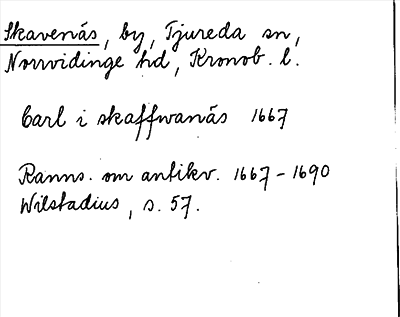 Skavenäs, by, Tjureda sn,
Norrvidinge hd, Kronob. l.
Carl i skaffwanäs 1667
Ranns. om antikv. 1667-1690
Wilstadius, s. 57.